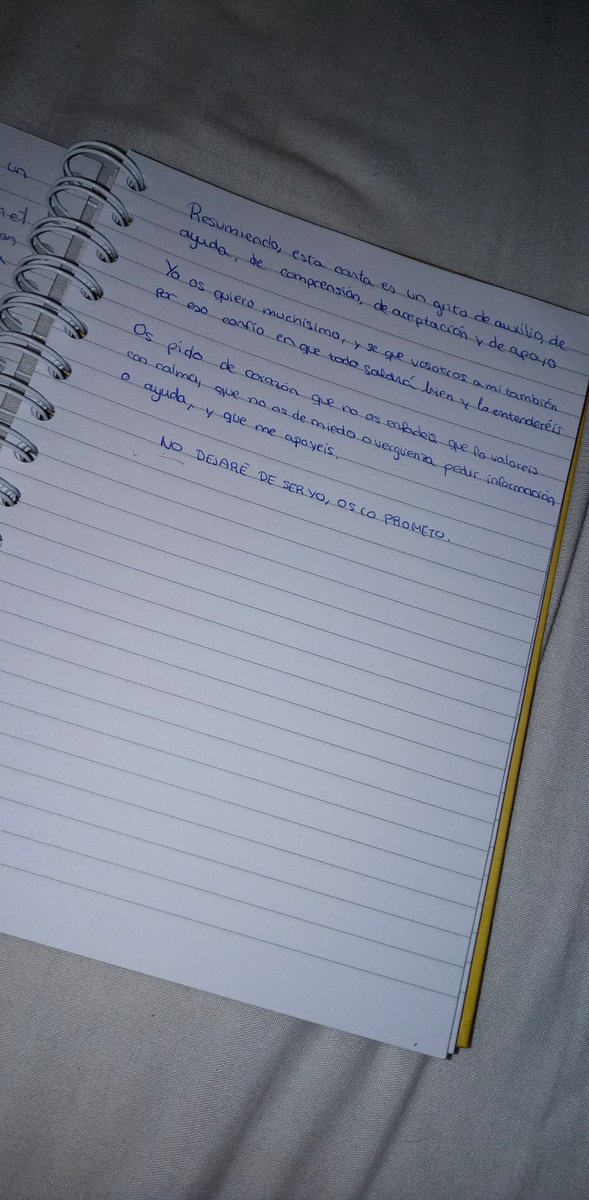 un
Resumiendo, esta carta es un grito de auxilio, de
ayuda, de comprensión, de aceptación y de apoyo
Yo os quiero muchísimo, y se que vosotros a mi también
por eso confío en que todo saldrá bien y lo entenderéis
Os pido de corazón que no os enfadeis, que lo valoreis
con calma, que no os de miedo o vergüenza pedir información
o ayuda, y que me apoyeis.
NO DEJARÉ DE SER YO, OS LO PROMETO.